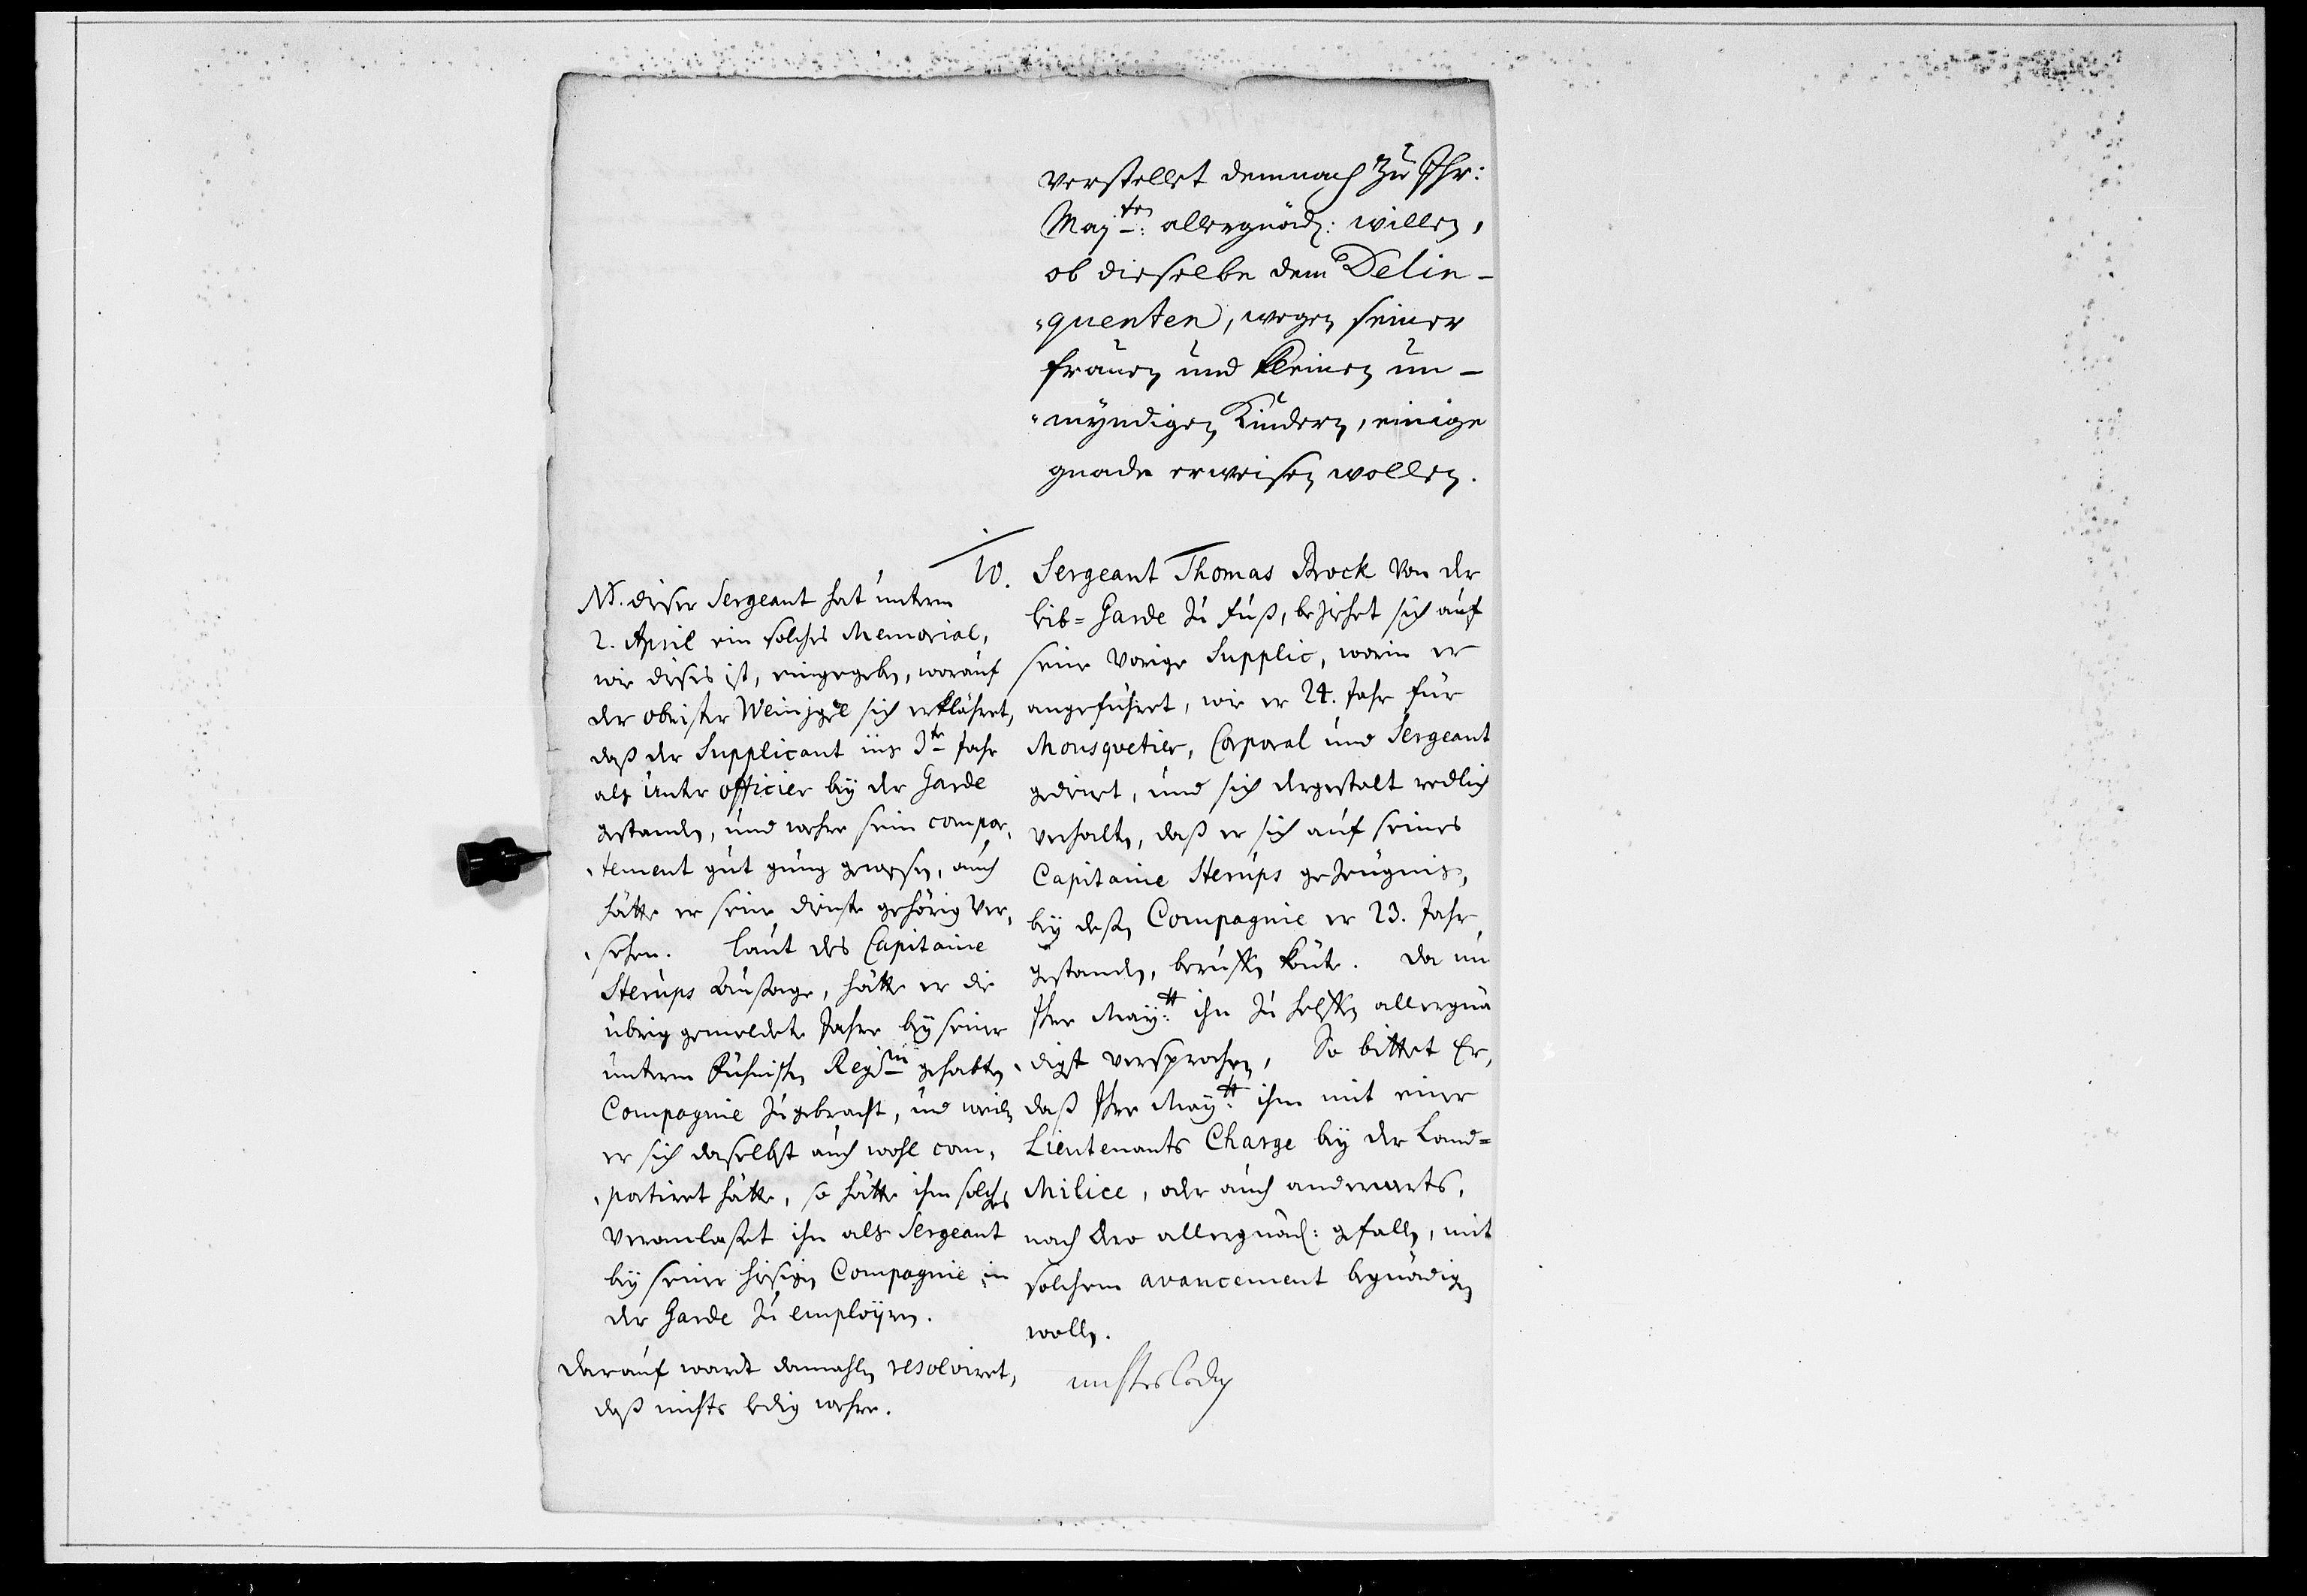 verstellet demnach Zu Ihr:
Maj:ten allergnäd: willen,
ob dieselbe dem Delin-
quenten, wegen seiner
frauen und kleinen un-
myndigen Kindern, einige
gnade erweisen wollen.
10. Sergeant Thomas Brock von der
Lib=Garde zu fuß, beziehet sich auf
seine vorige Supplic, worin er
angeführet, wie er 24. Jahr für
Mousquetier, Corporal und Sergeant
gedient, und sich dergestalt redlich
verhalten, daß er sich auf seines
Capitaine Sterups gezeugnis,
bey deßen Compagnie er 23. Jahr
gestanden, beruffen könte. Da nu
Ihre May:tt ihn zu helffen allergnä
digst versprochen, So bittet Er,
daß Ihre May:tt ihm mit einer
Lieutenants Charge bey der Land=
Milice, oder auch anderwerts,
nach dero allergnäd: gefallen, mit
solchem avancement begnädigen
wollen.
nichts ledig
NB. dieser Sergeant hat unterm
2. April ein solches Memorial,
wie dieses ist, eingegeben, worauf
der obrister Weinigel sich erklähret,
daß der Supplicant ins 3te Jahr
als Unter officier bey der Garde
gestanden, und wehre sein compor,
tement gut gnug gewesen, auch
hätte er seine dienste gehörig ver,
sehen. laut des Capitaine
Sterups Außage, hätte er die
übrig gemeldete Jahre bey seiner
unterm Regim: gehabten
Compagnie zugebracht, und weilen
er sich daselbst auch wohl com,
portiret hätte, so hätte ihm solches
veranlaßet ihn als Sergeant
bey seiner hiesigen Compagnie in
der Garde zu employren.
Darauf wardt damahlen resolviret,
daß nichts ledig wehre.